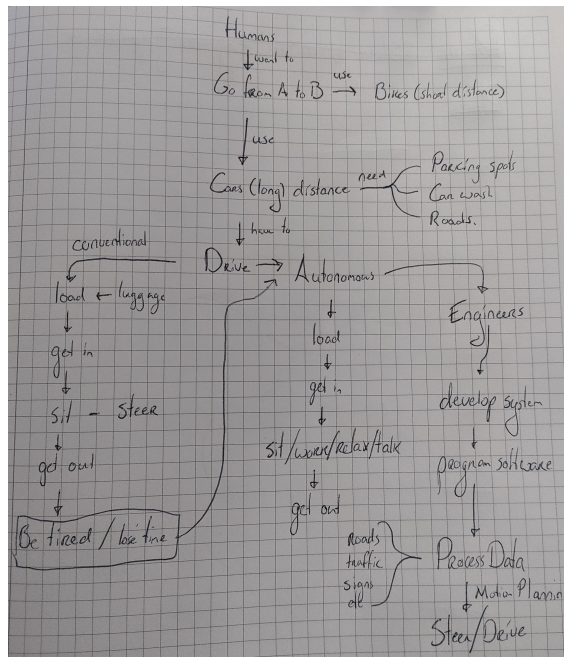 Humans
want to
Go from A to B use Bikes (short distance)
use
Cars (long) distance need Parking spots
Car wash
Roads.
have to
conventional
Drive Autonomous
load luggage
get in
sit - steer
get out
Be tired / lose time
load
get in
sit/work/relax/talk
get out
Engineers
develop system
program software
Process Data
Roads
traffic
signs
etc
Motion Plannin
Steer/Drive